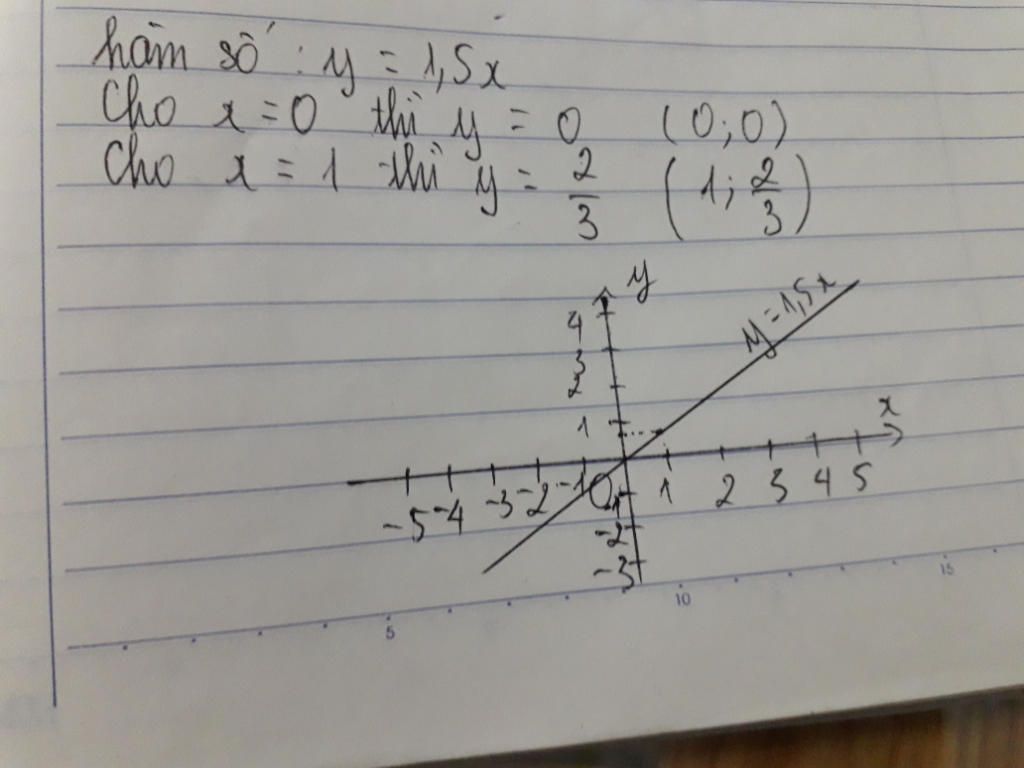 hàm số : y = 1,5x
Cho x = 0 thì y = 0 (0;0)
Cho x = 1 thì y = 2/3 (1; 2/3)
y
4
3
2
1
y = 1,5x
x
-5 -4 -3 -2 -1 O 1 2 3 4 5
-1
-2
-3
5 10 15